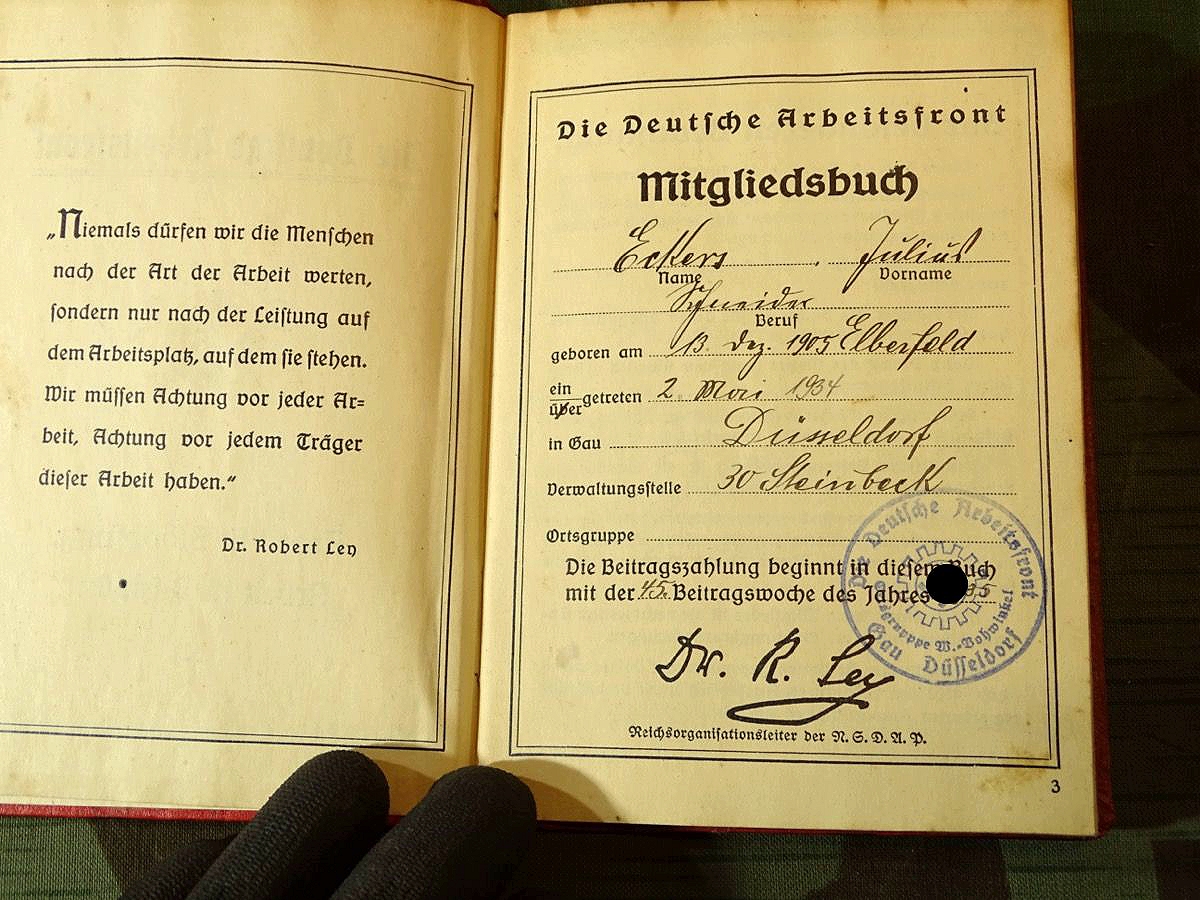 „Niemals dürfen wir die Menschen
nach der Art der Arbeit werten,
sondern nur nach der Leistung auf
dem Arbeitsplatz, auf dem sie stehen.
Wir müssen Achtung vor jeder Ar=
beit, Achtung vor jedem Träger
dieser Arbeit haben.“
Dr. Robert Ley
Die Deutsche Arbeitsfront
Mitgliedsbuch
Eckers, Julius
Name Vorname
Schneider
Beruf
geboren am 13. Dez. 1905 Elberfeld
ein
über getreten 2. Mai 1934
in Gau Düsseldorf
Verwaltungsstelle 30 Steinbeck
Ortsgruppe
Die Beitragszahlung beginnt in diesem Buch
mit der 45. Beitragswoche des Jahres 35
Die Deutsche Arbeitsfront
Ortsgruppe W.-Vohwinkel
Gau Düsseldorf
Dr. R. Ley
Reichsorganisationsleiter der N. S. D. A. P.
3